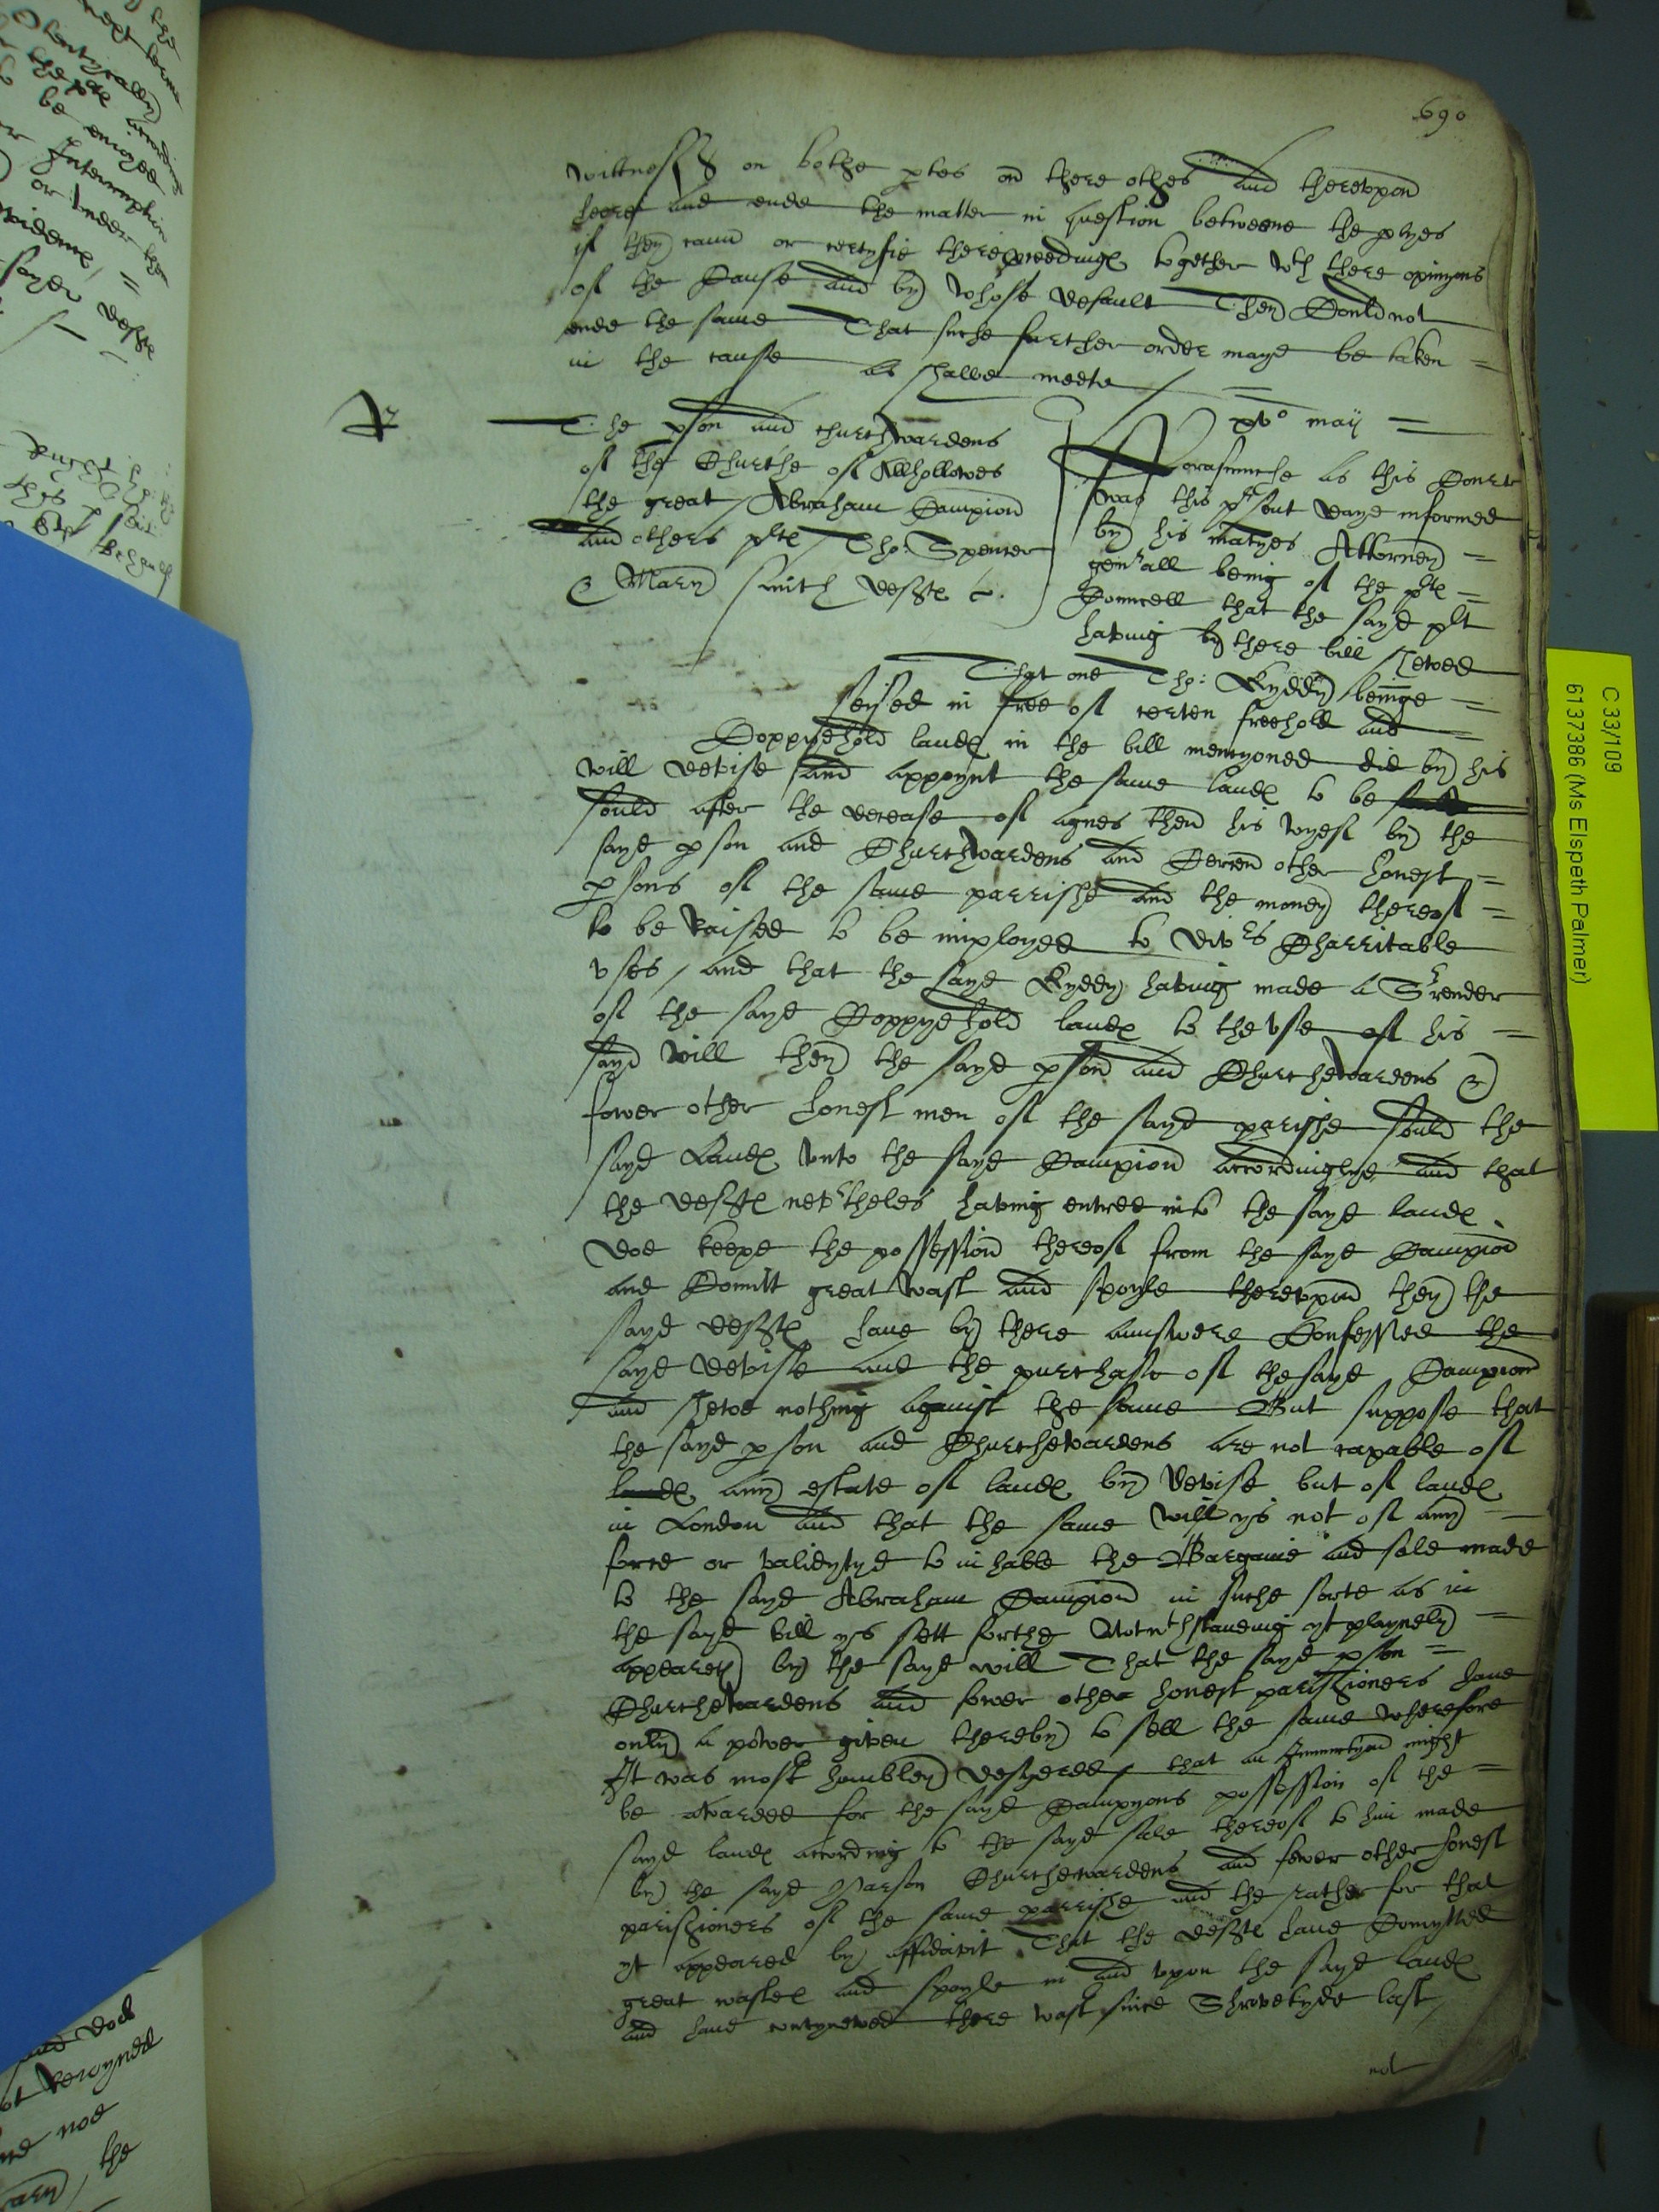 690
wittnesses on bothe ptes on there othes and therevpon
heere and ende the matter in question betweene the ptyes
if they cann or certyfie there pceedinges together wth there opinyons
of the Cause and by whose default They Could not
ende the same That suche further order maye be taken
in the cause as shalbe meete
The pson and churchwardens
of the Churche of Allhollowes
the great Abraham Campion
and others plts Tho: Spenter
& Mary Smith defts
xvo maij
Forasmuche as this Court
was this psent daye informed
by his matyes Attorney
genrall being of the plts
Councell that the sayd plt
having by there bill shewed
That one Tho: Kyddy beinge
seised in fee of certen freehold and
Coppyehold landes in the bill mencyoned did by his
will devise and appoynt the same landes to be
sould after the decease of agnes then his wyef by the
sayd pson and Churchwardens and Certen other honest
psons of the same parrishe and the money thereof
to be raised to be imployed to divrs Charritable
vses / and that the sayd Kyddy having made a Srender
of the sayd Coppyehold landes to the vse of his
sayd will they the sayd pson and Churchewardens &
fower other honest men of the sayd parishe sould the
sayd Landes vnto the sayd Campion accordinglye and that
the defts nevrtheles having entred into the sayd landes
doe keepe the possession thereof from the sayd Campion
and Comitt great wast and spoyle therevpon they the
sayd defts have by there aunswere Confessed the
sayd devise and the purchase of the sayd Campion
and shewe nothing against the same But suppose that
the sayd pson and Churchewardens are not capable of
landes any estate of landes by devise but of landes
in London and that the same will ys not of any
force or validytye to inhable the Bargaine and sale made
to the sayd Abraham Campion in suche sorte as in
the sayd bill ys sett forthe Notwthstanding yt playnely
appeareth by the sayd will That the sayd pson
Churchewardens and fower other honest parishioners have
only a power given thereby to sell the same wherefore
It was most humbley desyered that an Iniunctyon might
be awarded for the sayd Campyons possession of the
sayd landes according to the sayd sale thereof to him made
by the sayd Parson Churchewardens and fower other honest
parishioners of the same parrishe and the rather for that
yt appeared by affidavit That the defts have Comytted
great wastes and spoyle in and vpon the sayd landes
and have contynewed there wast since Shrovetyde last
not
C 33/109
6137386 (Ms Elspeth Palmer)